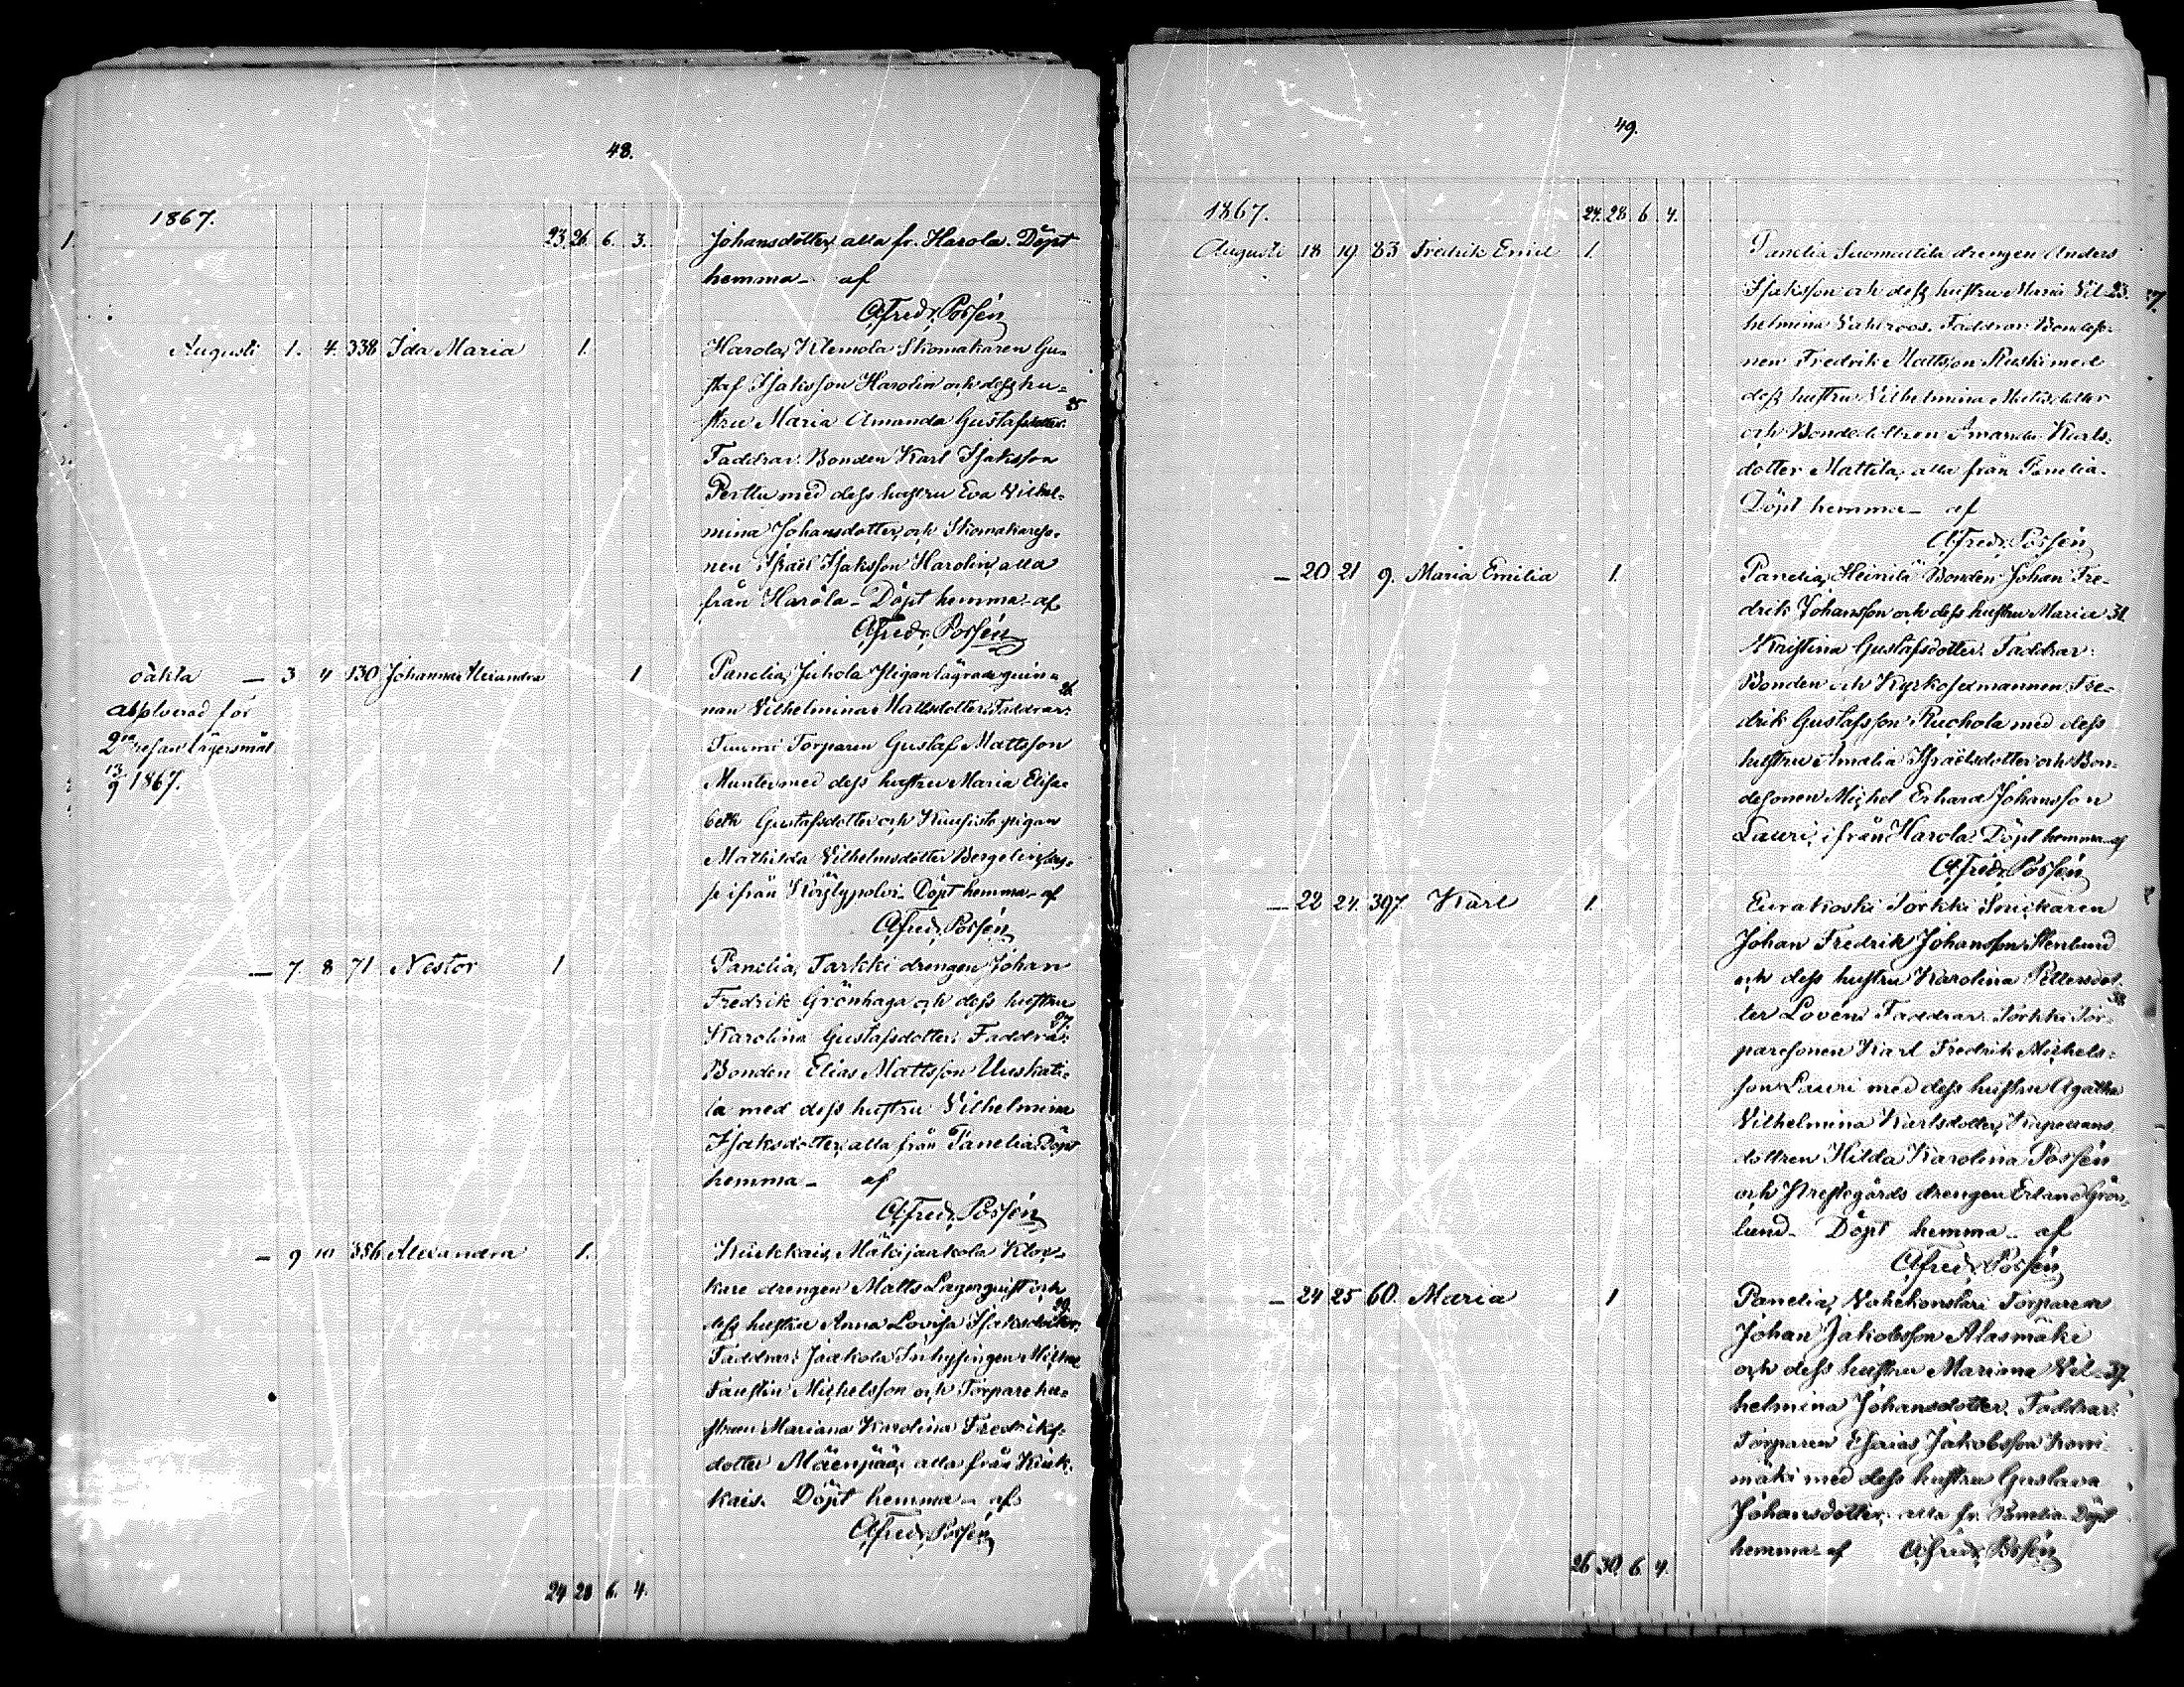 48.
1867.
23. 26. 6. 3. Johansdotter, alla fr. Harola. Döpt
hemma - af
Alfredr. Possén
Augusti 1. 4. 338 Ida Maria 1. Harola, Klemola Skomakaren Gu-
staf Isaksson Harolin och dess hu-
stru Maria Amanda Gustafsdotter. 25
Faddrar: Bonden Karl Isaksson
Perttu med dess hustru Eva Vilhel-
mina Johansdotter, och Skomakareso-
nen Israël Isaksson Harolin, alla
från Harola - Döpt hemma - af
Alfredr. Possén
oäkta — 3 4 130 Johanna Alexandra 1 Panelia, Juhola lägrade quin-
nan Vilhelmina Mattsdotter. Faddrar: 26
absolverad för
2dra resan lägersmål
13/9 1867.
Tuumi Torparen Gustaf Mattsson
Munter med dess hustru Maria Elisa-
beth Gustafsdotter och Kuusisto pigan
Mathilda Vilhelmsdotter Bergelin,
ifrån Köylypolvi - Döpt hemma - af
Alfredr. Possén
— 7. 8 71 Nestor 1 Panelia, Tarkki drengen Johan
Fredrik Grönhaga och dess hustru
Karolina Gustafsdotter. Faddrar: 27.
Bonden Elias Mattsson Uuskati-
la med dess hustru Vilhelmina
Isaksdotter, alla från Panelia. Döpt
hemma - af
Alfredr. Possén
— 9 10 356 Alexandra 1. Kiukkais, Mäkijaakola Kloc-
kare drengen Matts Lagerquist och
dess hustru Anna Lovisa Isaksdotter.
Faddrar: Jaakola Inhysingen
Faustin Michelsson och Torparehu-
strun Mariana Karolina Fredriks-
dotter Mäenpää, alla från Kiuk-
kais. Döpt hemma - af
Alfredr. Possén
24 28 6. 4.
49.
1867. 24. 28 6 4.
Augusti 18 19. 83 Fredrik Emil 1. Panelia Suomattila drengen Anders
Isaksson och dess hustru Maria Vil- 23.
helmina Vahlroos. Faddrar: Bondeso-
nen Fredrik Mattsson Ruski med
dess hustru Vilhelmina Mattsdotter
och Bondedottren Amanda Karls-
dotter Mattila, alla från Panelia.
Döpt hemma - af
Alfredr. Possén
— 20 21 9. Maria Emilia 1. Panelia, Heinilä Bonden Johan Fre-
drik Johansson och dess hustru Maria 31.
Kristina Gustafsdotter. Faddrar:
Bonden och Kyrkosexmannen Fre-
drik Gustafsson Ruohola med dess
hustru Amalia Israëlsdotter och Bon-
desonen Michel Erhard Johansson
Lauri, ifrån Harola. Döpt hemma - af
Alfredr. Possén
— 22 24. 397. Karl 1. Eurakoski Torkki Snickaren
Johan Fredrik Johansson Stenlund
och dess hustru Karolina Pettersdot-
ter Lovén. Faddrar: Torkki Tor- 38
paresonen Karl Fredrik Michels-
son Lauri med dess hustru Agatha
Vilhelmina Karlsdotter, Kapellans
dottren Hilda Karolina Possén
och Prestegårds drengen Erland Grön-
lund - Döpt hemma - af
Alfredr. Possén
— 24 25 60. Maria 1 Panelia, Torparen
Johan Jakobsson Alasmäki
och dess hustru Mariana Vil- 37
helmina Johansdotter. Faddrar:
Torparen Esaias Jakobsson
mäki med dess hustru Gustava
Johansdotter, alla fr. Panelia. Döpt
hemma - af Alfredr. Possén
26 30. 6 4.